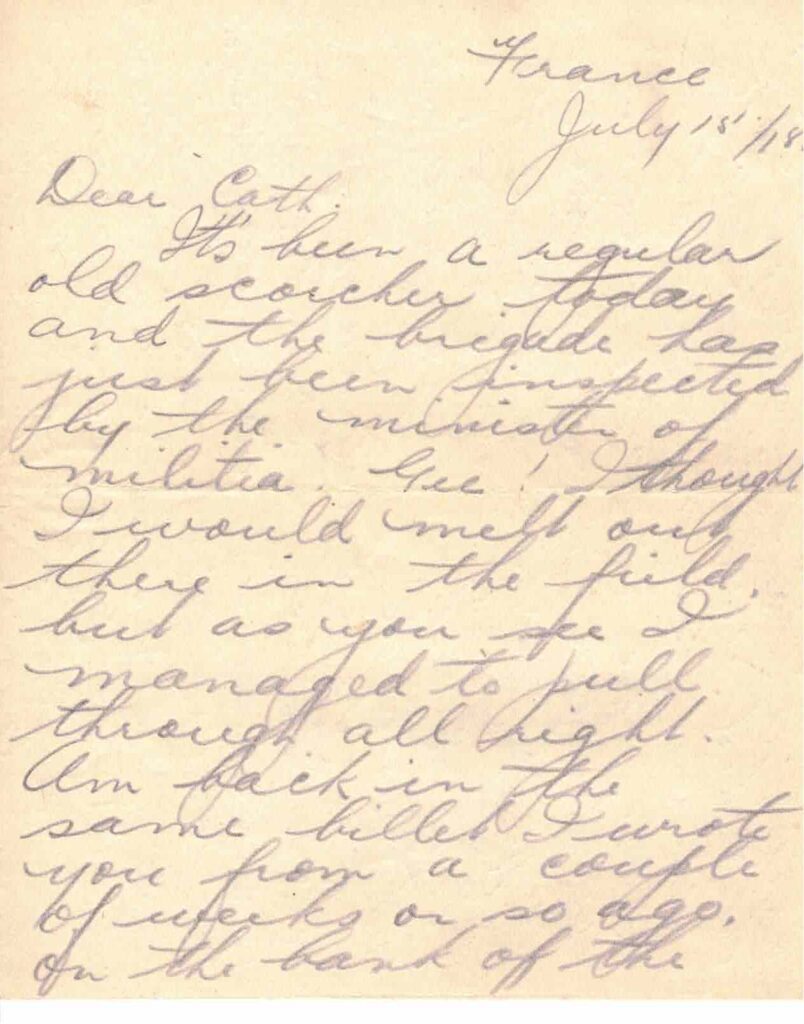 France
July 15/18.
Dear Cath.
It's been a regular
old scorcher today
and the brigade has
just been inspected
by the minister of
militia. Gee! I thought
I would melt out
there in the field.
but as you see I
managed to pull
through all right.
Am back in the
same billet I wrote
you from a couple
of weeks or so ago.
on the bank of the